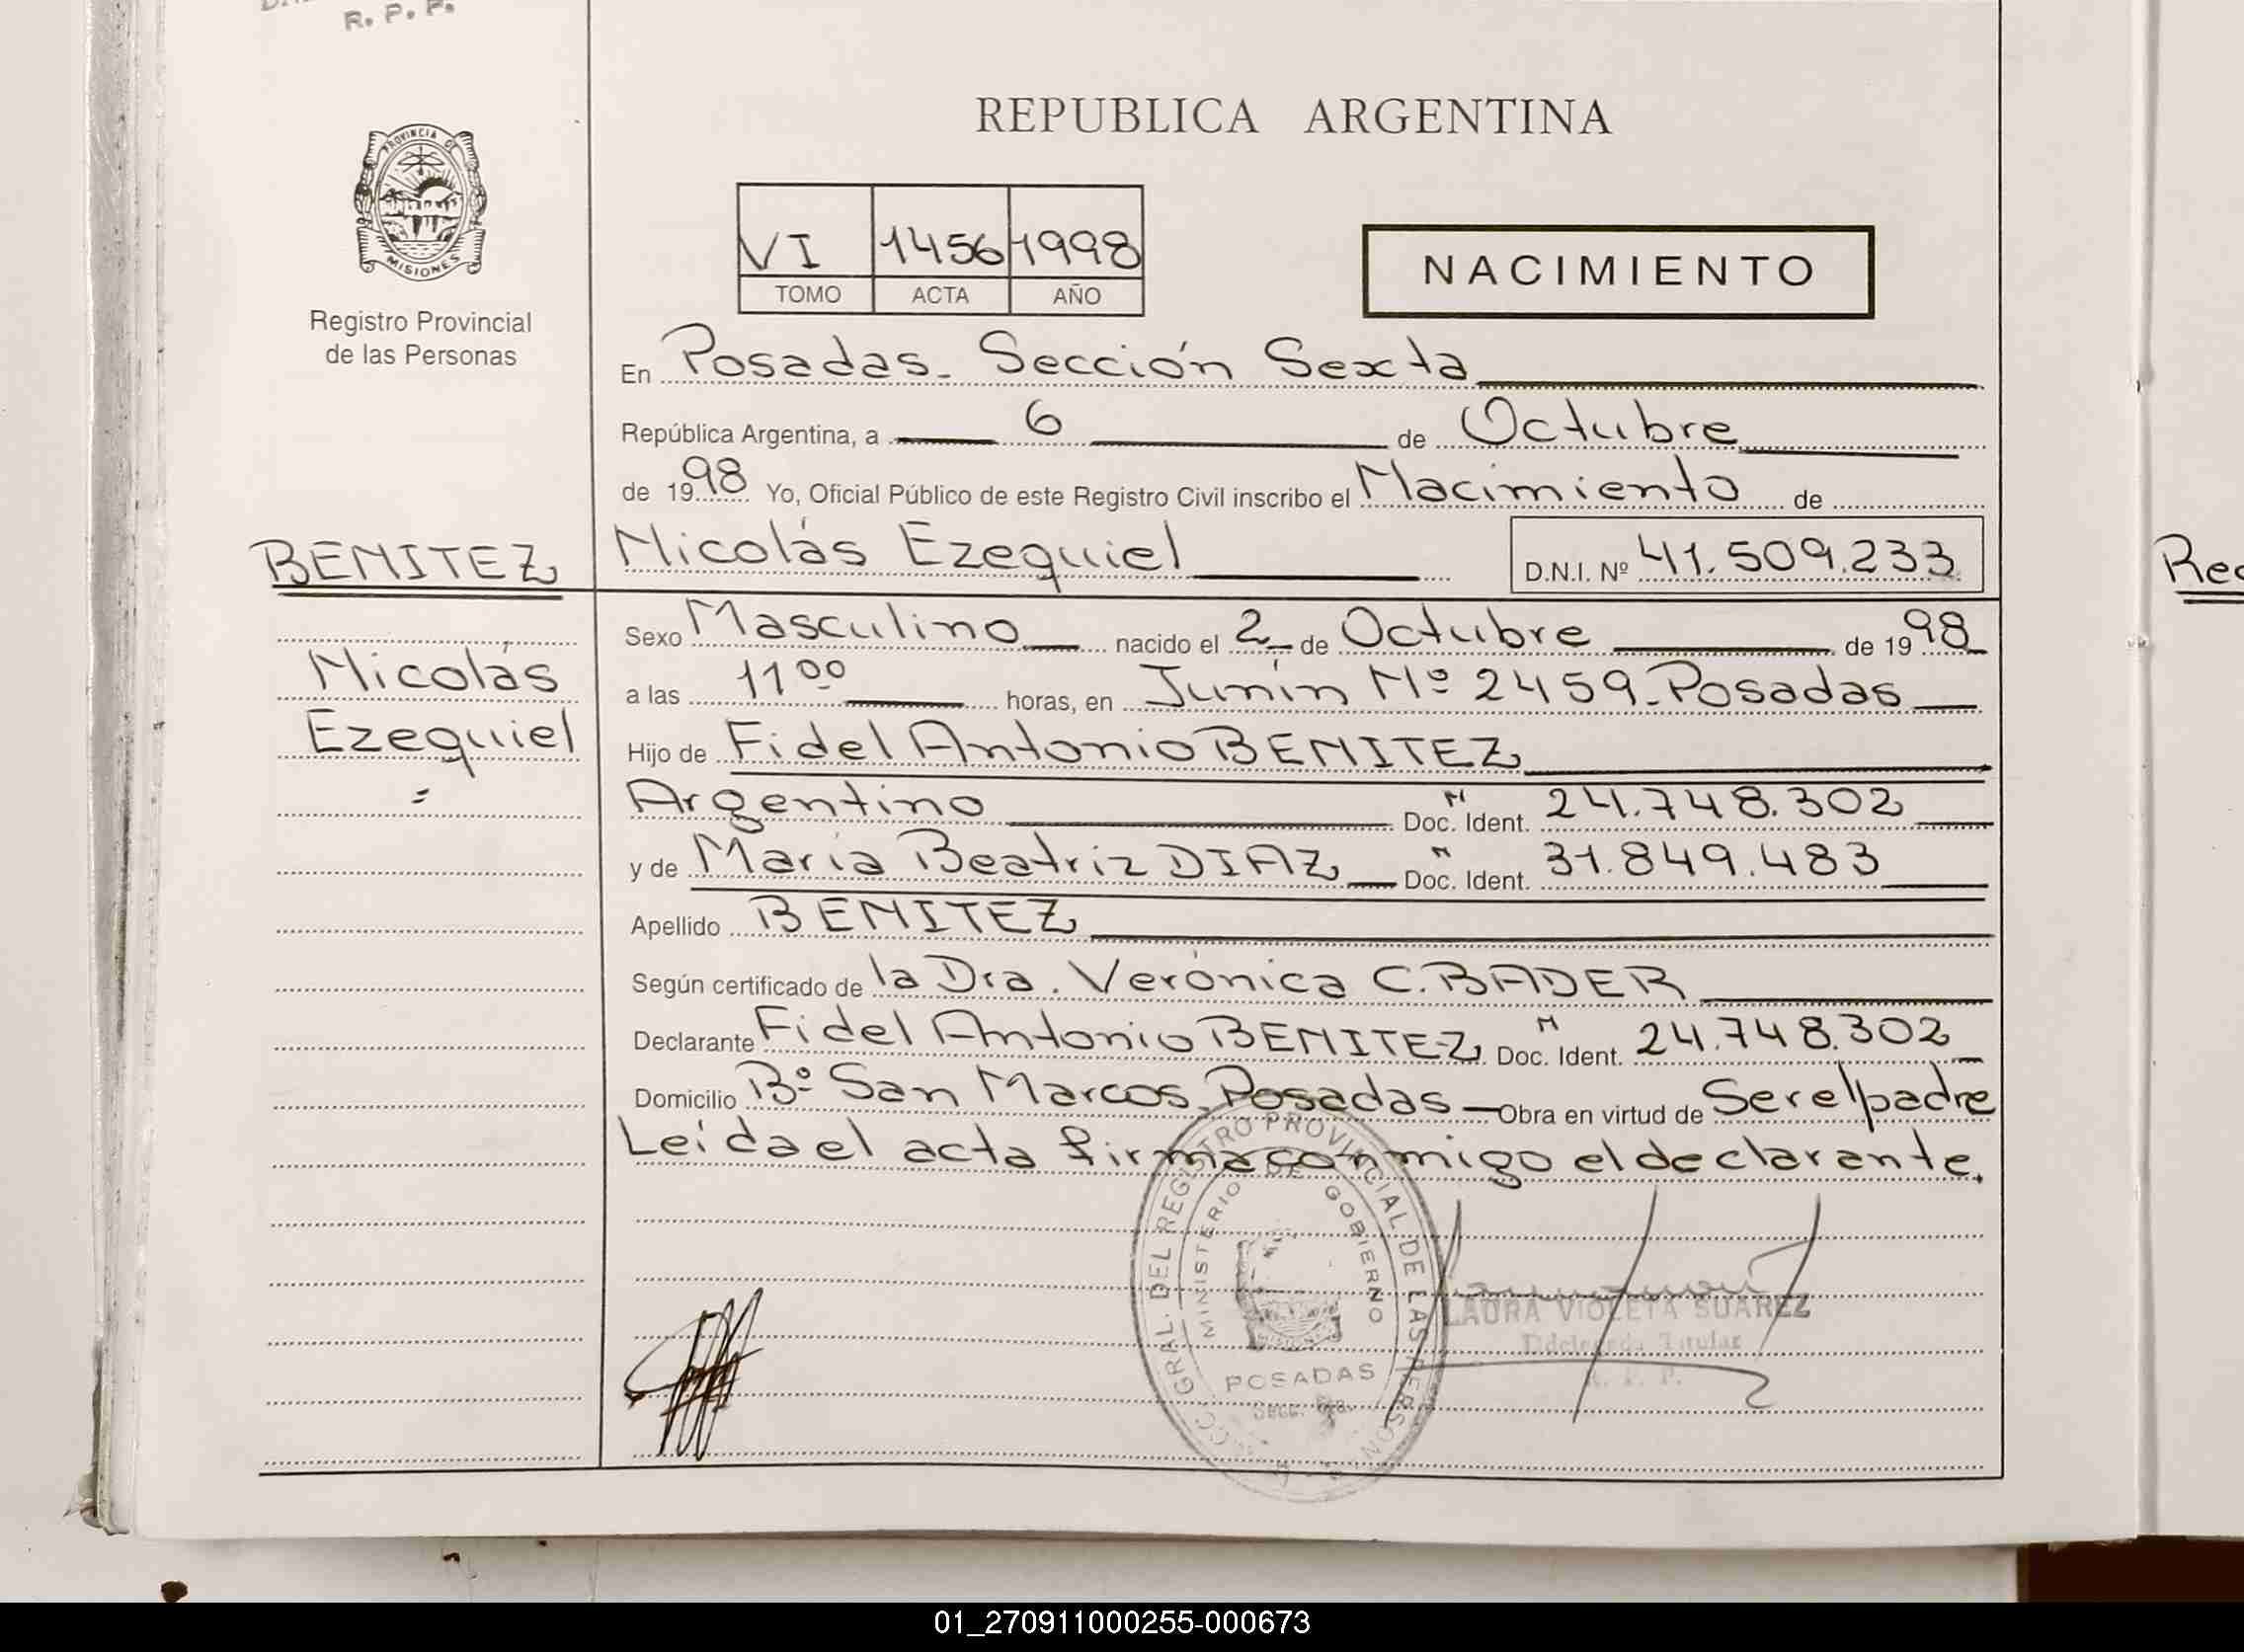 R. P. P.
REPUBLICA ARGENTINA
PROVINCIA DE MISIONES
Registro Provincial
de las Personas
VI 1456 1998
TOMO ACTA AÑO
NACIMIENTO
En Posadas - Sección Sexta
República Argentina, a 6 de Octubre
de 1998 Yo, Oficial Público de este Registro Civil inscribo el Nacimiento de
BENITEZ Nicolás Ezequiel D.N.I. Nº 41.509.233
Sexo Masculino nacido el 2 de Octubre de 1998
Nicolás
a las 11 00 horas, en Junín Nº 2459 - Posadas
Ezequiel
Hijo de Fidel Antonio BENITEZ
Argentino Doc. Ident. N 24.748.302
y de María Beatriz DIAZ Doc. Ident. N 31.849.483
Apellido BENITEZ
Según certificado de la Dra. Verónica C. BADER
Declarante Fidel Antonio BENITEZ Doc. Ident. N 24.748.302
Domicilio Bº San Marcos - Posadas Obra en virtud de Ser el padre
Leída el acta firma conmigo el declarante.
GRAL. DEL REGISTRO PROVINCIAL DE LAS PERSONAS
MINISTERIO DE GOBIERNO
POSADAS
LAURA VIOLETA SUAREZ
Titular
R. P. P.
01_270911000255-000673